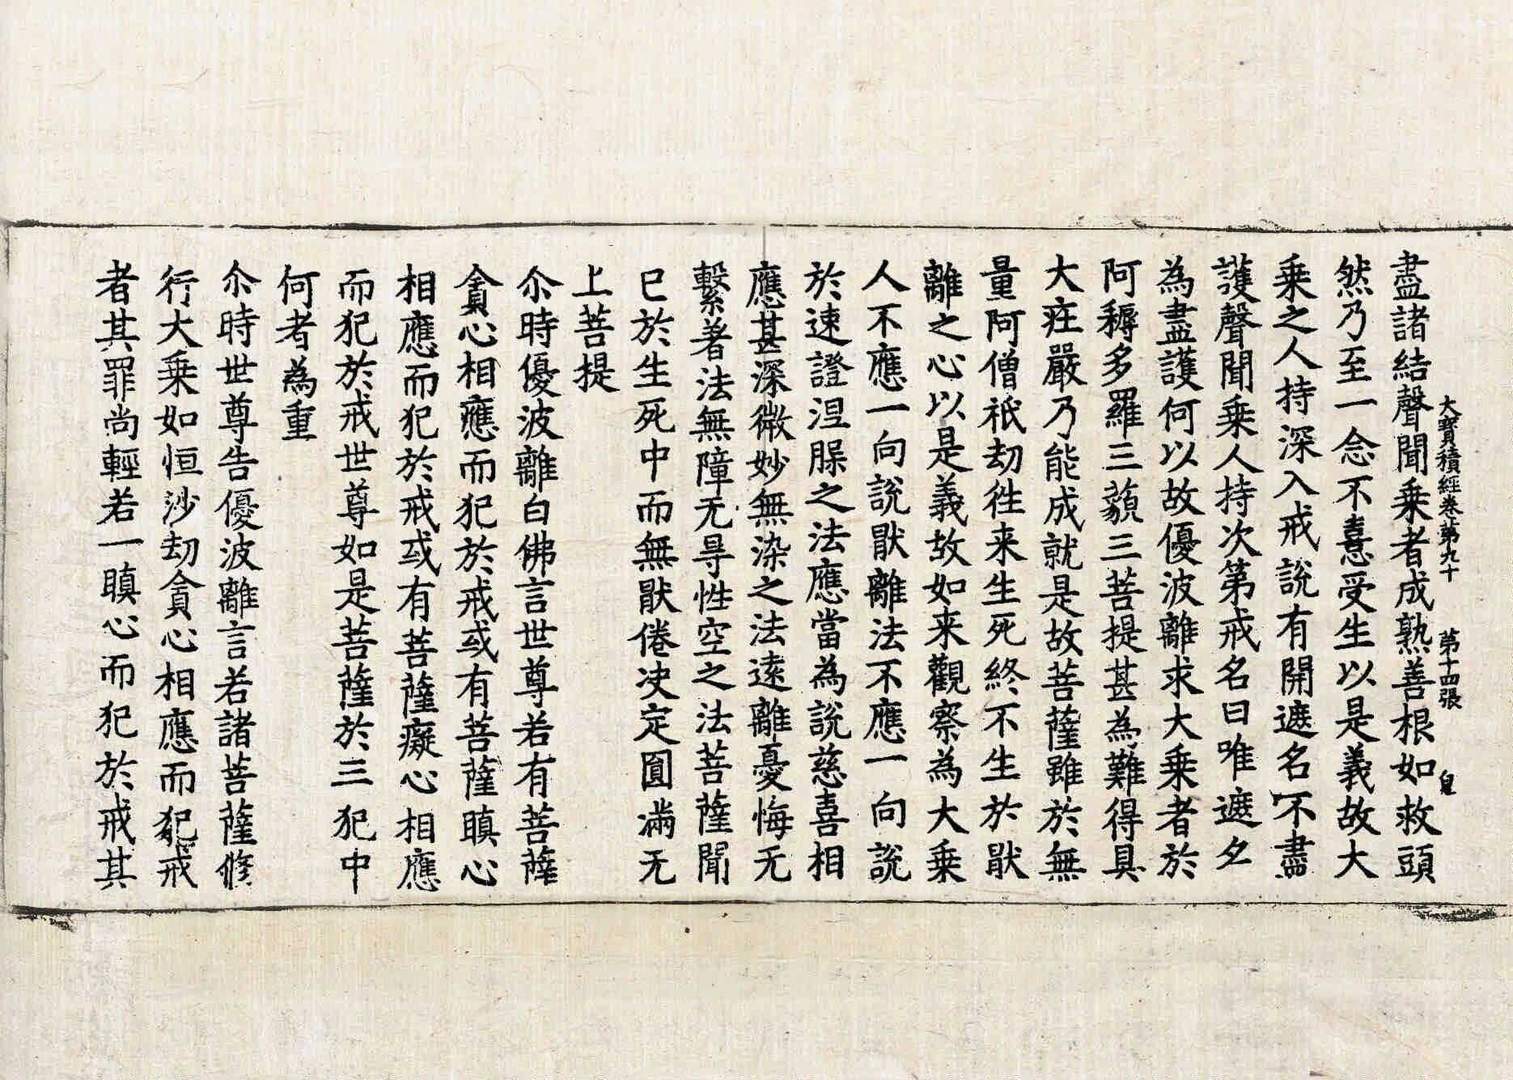 大寳積經卷第九十　第十四張　皇
盡諸結聲聞乗者成熟善根如救頭
然乃至一念不憙受生以是義故大
乗之人持深入戒說有開遮名不盡
護聲聞乗人持次第戒名曰唯遮名
為盡護何以故優波離求大乗者於
阿耨多羅三藐三菩提甚為難得具
大疰嚴乃能成就是故菩薩雖於無
量阿僧祇劫徃来生死終不生於猒
離之心以是義故如来觀察為大乗
人不應一向說猒離法不應一向說
於速證涅脲之法應當為說慈喜相
應甚深微妙無染之法逺離憂悔无
繫著法無障无㝵性空之法菩薩聞
已於生死中而無猒倦决定圓滿无
上菩提
尒時優波離白佛言世尊若有菩薩
貪心相應而犯於戒或有菩薩瞋心
相應而犯於戒或有菩薩癡心相應
而犯於戒世尊如是菩薩於三犯中
何者為重
尒時世尊告優波離言若諸菩薩修
行大乗如恒沙劫貪心相應而犯戒
者其罪尚輕若一瞋心而犯於戒其